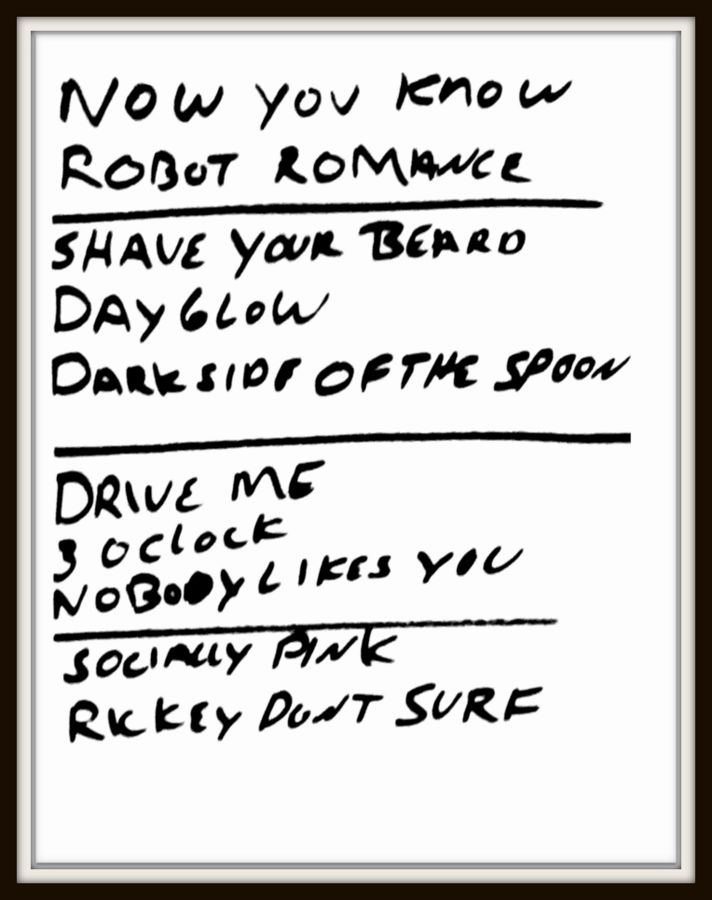 NOW YOU KNOW
ROBOT ROMANCE
SHAVE YOUR BEARD
DAY GLOW
DARK SIDE OF THE SPOON
DRIVE ME
3 OCLOCK
NOBODY LIKES YOU
SOCIALLY PINK
RICKEY DONT SURF